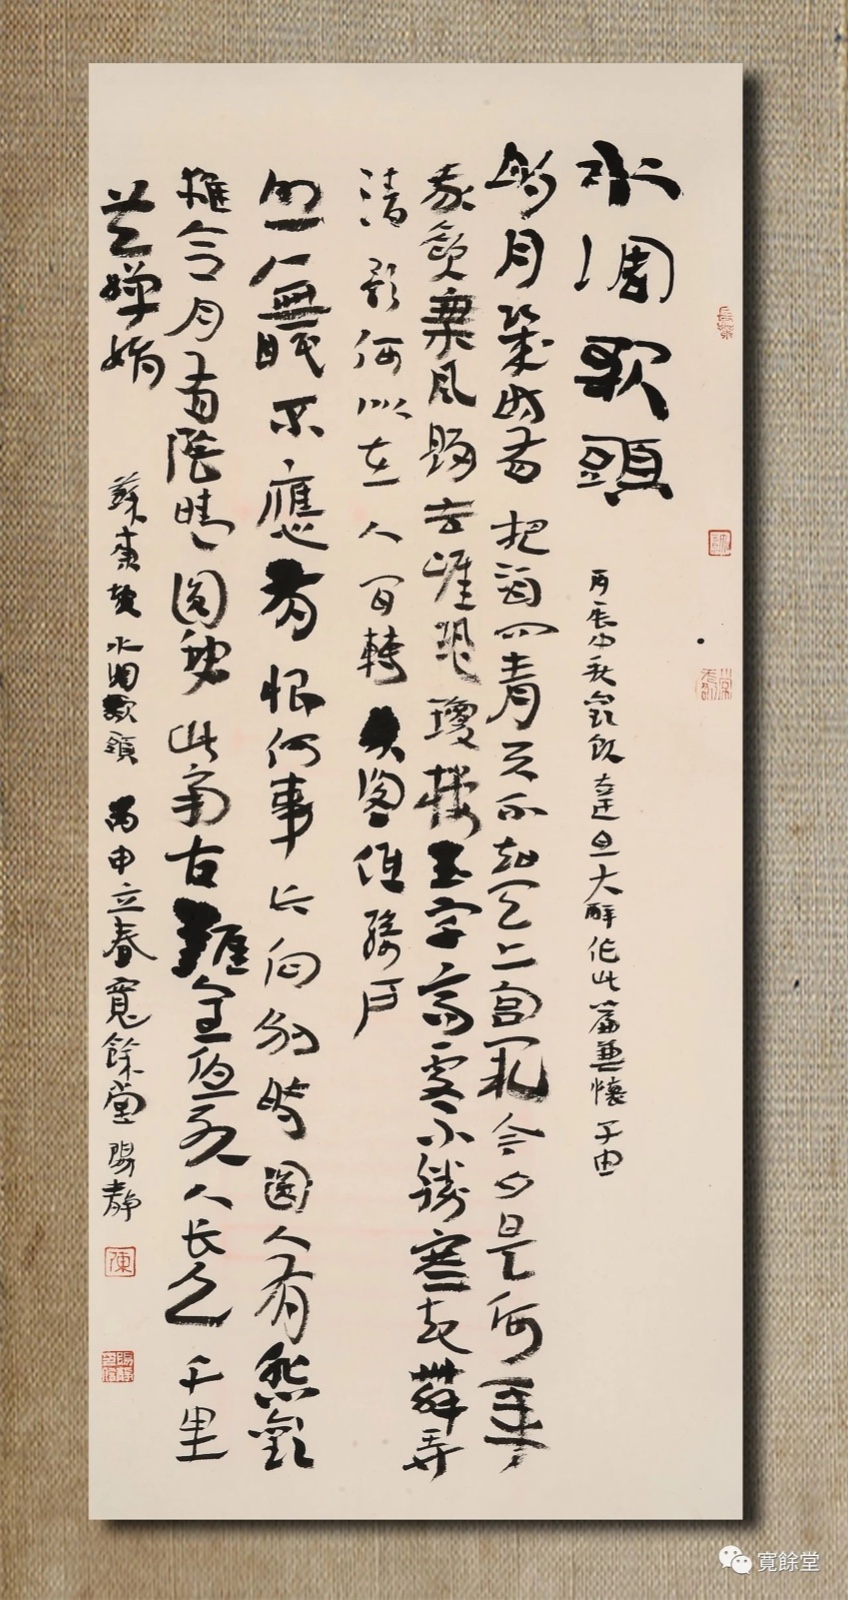 水调歌頭
丙辰中秋歡飲達旦大醉作此篇兼懷子由
明月幾時有把酒问青天不知天上宫闕今夕是何年
我欲乘風歸去唯恐瓊楼玉宇高處不勝寒起舞弄
清影何似在人间轉朱阁低绮户
照無眠不應有恨何事长向别時圆人有悲歡
離合月有陰晴圆缺此事古難全但願人长久千里
共嬋娟
蘇東坡水调歌頭丙申立春寬餘堂陽静
陳
寛餘堂